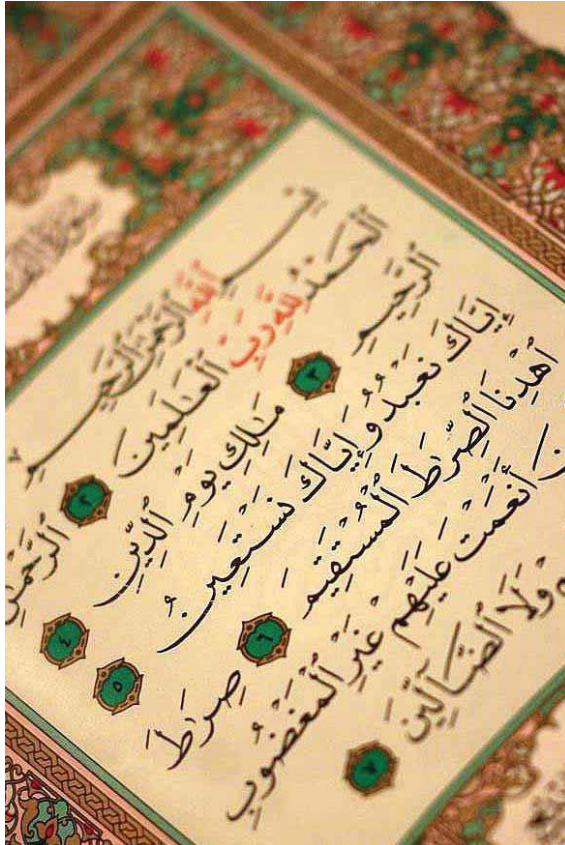 سورة
بِسْمِ ٱللَّهِ ٱلرَّحْمَٰنِ ٱلرَّحِيمِ
ٱلْحَمْدُ لِلَّهِ رَبِّ ٱلْعَٰلَمِينَ ٢ ٱلرَّحْمَٰنِ
ٱلرَّحِيمِ ٣ مَٰلِكِ يَوْمِ ٱلدِّينِ ٤
إِيَّاكَ نَعْبُدُ وَإِيَّاكَ نَسْتَعِينُ ٥
ٱهْدِنَا ٱلصِّرَٰطَ ٱلْمُسْتَقِيمَ ٦ صِرَٰطَ
أَنْعَمْتَ عَلَيْهِمْ غَيْرِ ٱلْمَغْضُوبِ
وَلَا ٱلضَّآلِّينَ ٧